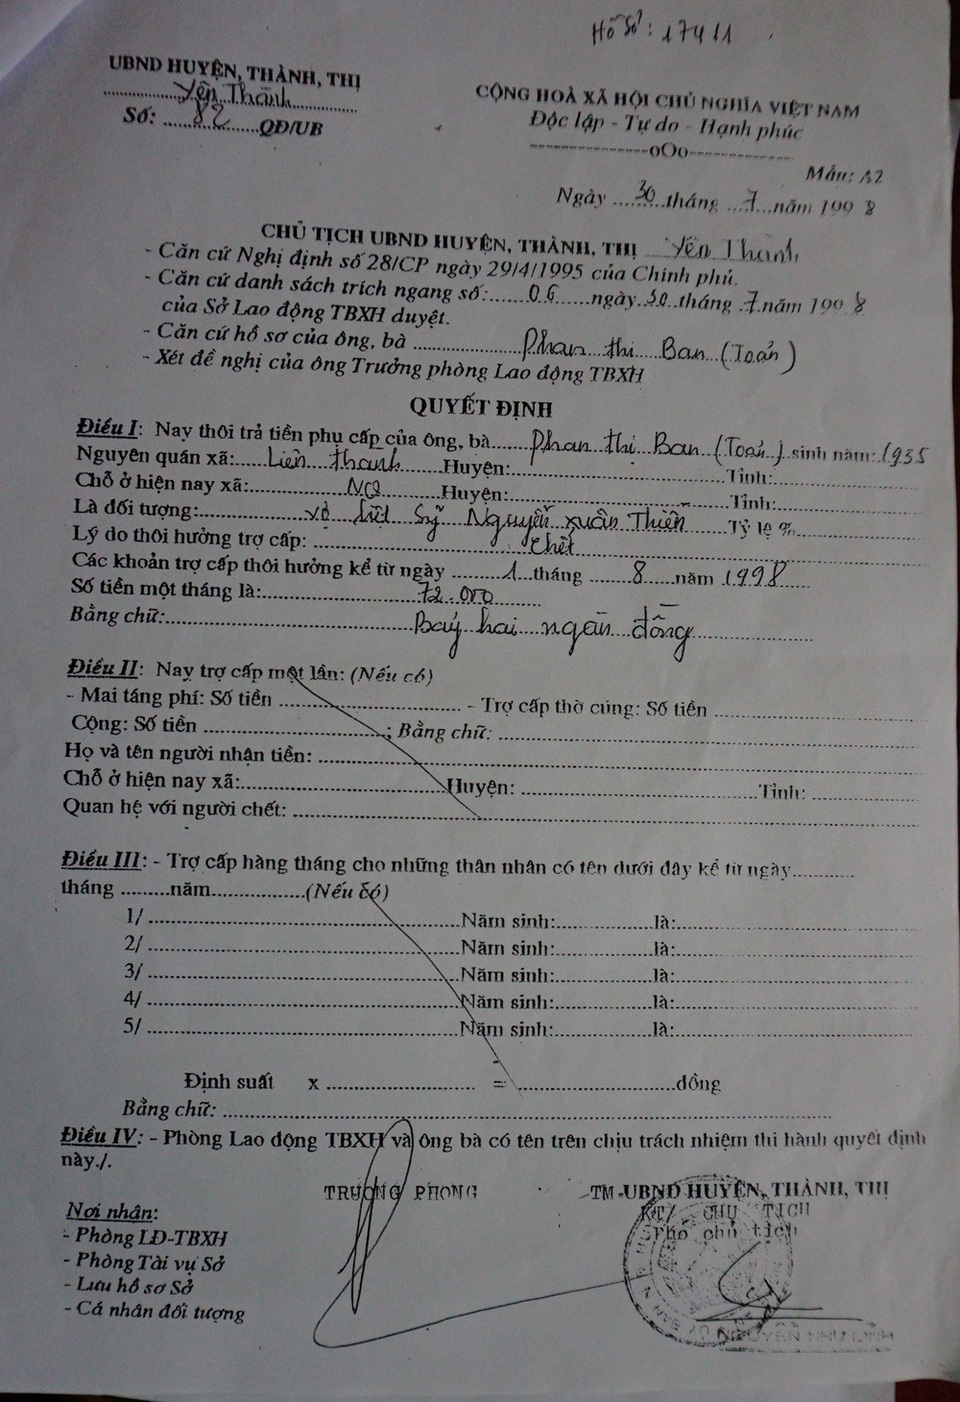 Hồ Sơ: 17411
UBND HUYỆN, THÀNH, THỊ
Yên Thành
Số: 82 QĐ/UB
CỘNG HOÀ XÃ HỘI CHỦ NGHĨA VIỆT NAM
Độc lập - Tự do - Hạnh phúc
---------------oOo-------------
Mẫu: A2
Ngày 30 tháng 7 năm 1998
CHỦ TỊCH UBND HUYỆN, THÀNH, THỊ Yên Thành
- Căn cứ Nghị định số 28/CP ngày 29/4/1995 của Chính phủ.
- Căn cứ danh sách trích ngang số: 06 ngày 30 tháng 7 năm 1998
của Sở Lao động TBXH duyệt.
- Căn cứ hồ sơ của ông, bà Phan thị Ban (Toản)
- Xét đề nghị của ông Trưởng phòng Lao động TBXH
QUYẾT ĐỊNH
Điều I: Nay thôi trả tiền phụ cấp của ông, bà Phan thị Ban (Toản) sinh năm: 1935
Nguyên quán xã: Liên thanh Huyện: Tỉnh:
Chỗ ở hiện nay xã: NQ Huyện: Tỉnh:
Là đối tượng: vợ liệt Sỹ Nguyễn xuân Thiên Tỷ lệ %
Lý do thôi hưởng trợ cấp: chết
Các khoản trợ cấp thôi hưởng kể từ ngày 1 tháng 8 năm 1998
Số tiền một tháng là: 72.000
Bằng chữ: Bảy hai ngàn đồng
Điều II: Nay trợ cấp một lần: (Nếu có)
- Mai táng phí: Số tiền - Trợ cấp thờ cúng: Số tiền
Cộng: Số tiền ; Bằng chữ:
Họ và tên người nhận tiền:
Chỗ ở hiện nay xã: Huyện: Tỉnh:
Quan hệ với người chết:
Điều III: - Trợ cấp hàng tháng cho những thân nhân có tên dưới đây kể từ ngày
tháng năm (Nếu có)
1/ Năm sinh: là:
2/ Năm sinh: là:
3/ Năm sinh: là:
4/ Năm sinh: là:
5/ Năm sinh: là:
Định suất x = đồng
Bằng chữ:
Điều IV: - Phòng Lao động TBXH và ông bà có tên trên chịu trách nhiệm thi hành quyết định
này./.
TRƯỞNG PHONG
TM-UBND HUYỆN, THÀNH, THỊ
KT/ CHỦ TỊCH
Phó chủ tịch
Nơi nhận:
- Phòng LĐ-TBXH
- Phòng Tài vụ Sở
- Lưu hồ sơ Sở
- Cá nhân đối tượng
NGUYỄN NHƯ